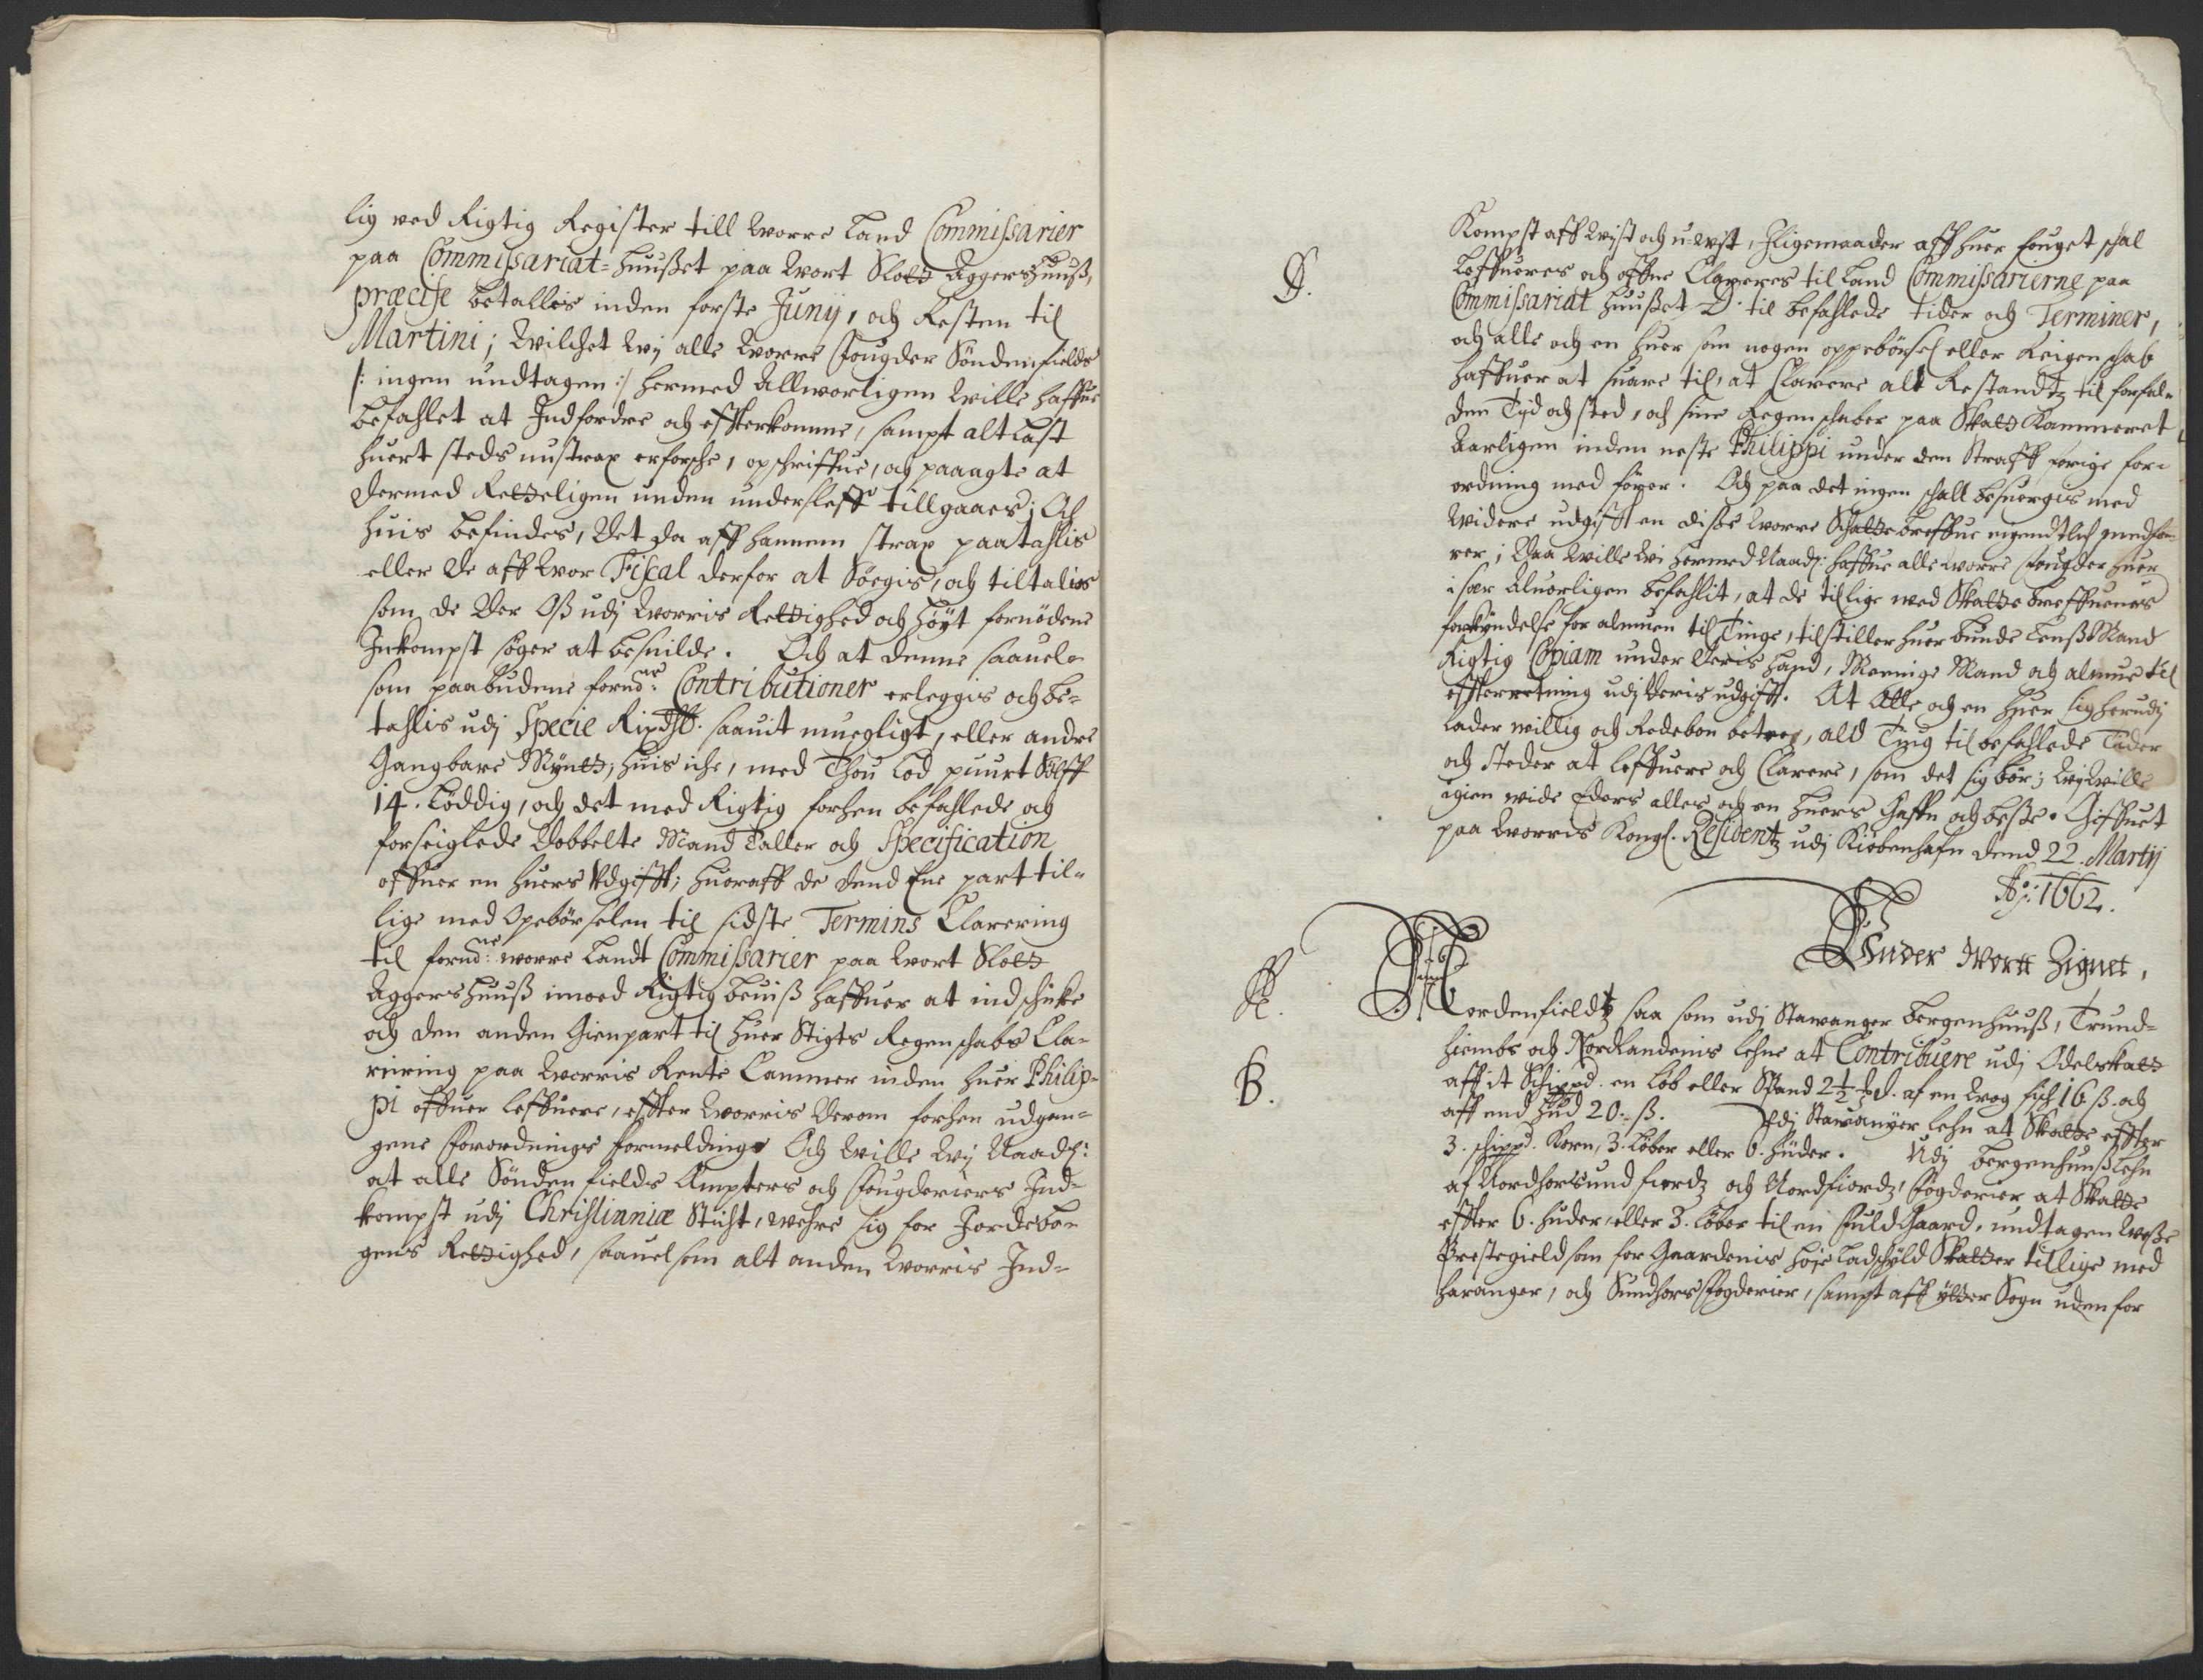 lig ved Rigtig Register till Worre Land Commissarier
paa Commissariat-Huuset paa Wort Slott Aggershuuß,
præcise betallis inden første Junij, och Resten til
Martini; Hvilchet Wij alle Worre Fougder Søndenfields
/: ingen undtagen :/ hermed Allworligen Wille haffue
befahlet at Indfordre och efterkomme, sampt alt Last
huert steds nu strax erforsche, opschriffue, och paaagte at
dermed Rettseligen unden undersleff tillgaaes; Och
huis befindes, Det da aff hannem strax paatahlis
eller De aff Wor Fiscal derfor at Søegis, och tiltalis
som de Der Oß udj Worris Rettighed och høyt fornødene
Inkompst søger at besuilde. Och at denne saauel-
som paabudene fornd:ne Contributioner erleggis och be-
tahlis udj Specie Rixdlr. saauit mueligt, eller andre
Gangbare Mynts, huis iche, med Thou Lod puurt Sølff
14. Løddig, och det med Rigtig forhen befahlede och
forseiglede Dobbelte Mand Taller och Specification
offuer en huers Udgifft; huoraff de dend Ene part til-
lige med Opebørselen til sidste Termins Clarering
til fornd:ne worre Landt Commissarier paa Wort Slott
Aggershuuß imoed Rigtig beuiß haffuer at indschicke
och den anden Gienpart til huer Stigts Regenschabs Cla-
rering paa Worris Rente Cammer inden huer Philip-
pi offuer leffuere, effter Worris Derom forhen udgan-
gene Forordnings formelding. Och Wille Wij Naadl:
at alle Sønden fields Ampters och Fougderiers Ind-
kompst udj Christianiæ Sticht, wehre sig for Jordebo-
gens Rettighed, saauelsom alt anden Worris Ind-
Kompst aff Wist och u-wist, Iligemaader aff huer fouget schal
D.
Leffueres och offuer Clareres til Land Commissarierne paa
Commissariat Huuset D. til befahlede tider och Terminer,
och alle och en huer som nogen oppebørsel eller Reigenschab
haffuer at suare til, at Clarere alt Restandtz til forfal-
den Tijd och sted, och sine Regenschaber paa Skatt Kammeret
Aarligen inden neste Philippi under den Straff forige for-
ordning med fører. Och paa det ingen schall besuergis med
Widere udgifft en disse Worre Schatte breffue eigendtlich medfø-
rer, Daa Wille Wi hermed Naadl: haffue alle Worre Fougder huer
i sær Aluorligen befahlit, at de tillige med Skatte breffuenes
forkyndelse for almuen til Tinge, tilstiller huer bunde LenßMand
Rigtig Copiam under Deris haand, Menige Mand och almue til
effterretning udj Deris udgifft. At Alle och en huer sig herudj
lader willig och Redebon betee, ald Ting til befahlede Tiider
och steder at Leffuere och Clarere, som det sig bør; Wij Wille
igien wide Eders alles och en huers Gaffn och beste. Giffuet
paa Worris Kongl. Residentz udj Kiøbenhafn dend 22. Martij
Ao: 1662.
Under Wortt Zignet,
A.
Nordenfieldtz saa som udj Stawanger Bergenhuuß, Trund-
hiembs och Nordlandenis Lehne at Contribuere udj Odelskatt
B.
aff it Schippd. en Løb eller Spand 2½ ... af en Wog fisch 16 ß. och
aff end hud 20. ß. Udj Stawanger Lehn at Skatte effter
3. schippd. Korn, 3. Løber eller 6. huder. Udj Bergenhuuß Lehn
af Nordhorsund fiordtz och Nordfiordtz Fogderier at Skatte
effter 6. huder, eller 3. Løber til en Fuld Gaard, undtagen Woße
Prestegield som for Gaardenis høje Ladschyld Skatter tillige med
Haranger, och Sundhors Fogderier, sampt aff ytter Sogn uden for